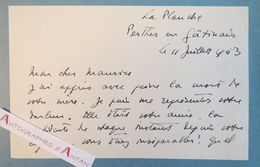 La Planche
Perthes en Gâtinais
le 11 juillet 1953
Mon cher Maurice
j'ai appris avec peine la mort de
votre mère. Je puis me représenter votre
douleur. Elle était votre amie, la
de chaque instant depuis votre
vous étiez inséparables! Quel
AUTOGRAPHES D'ANTAN